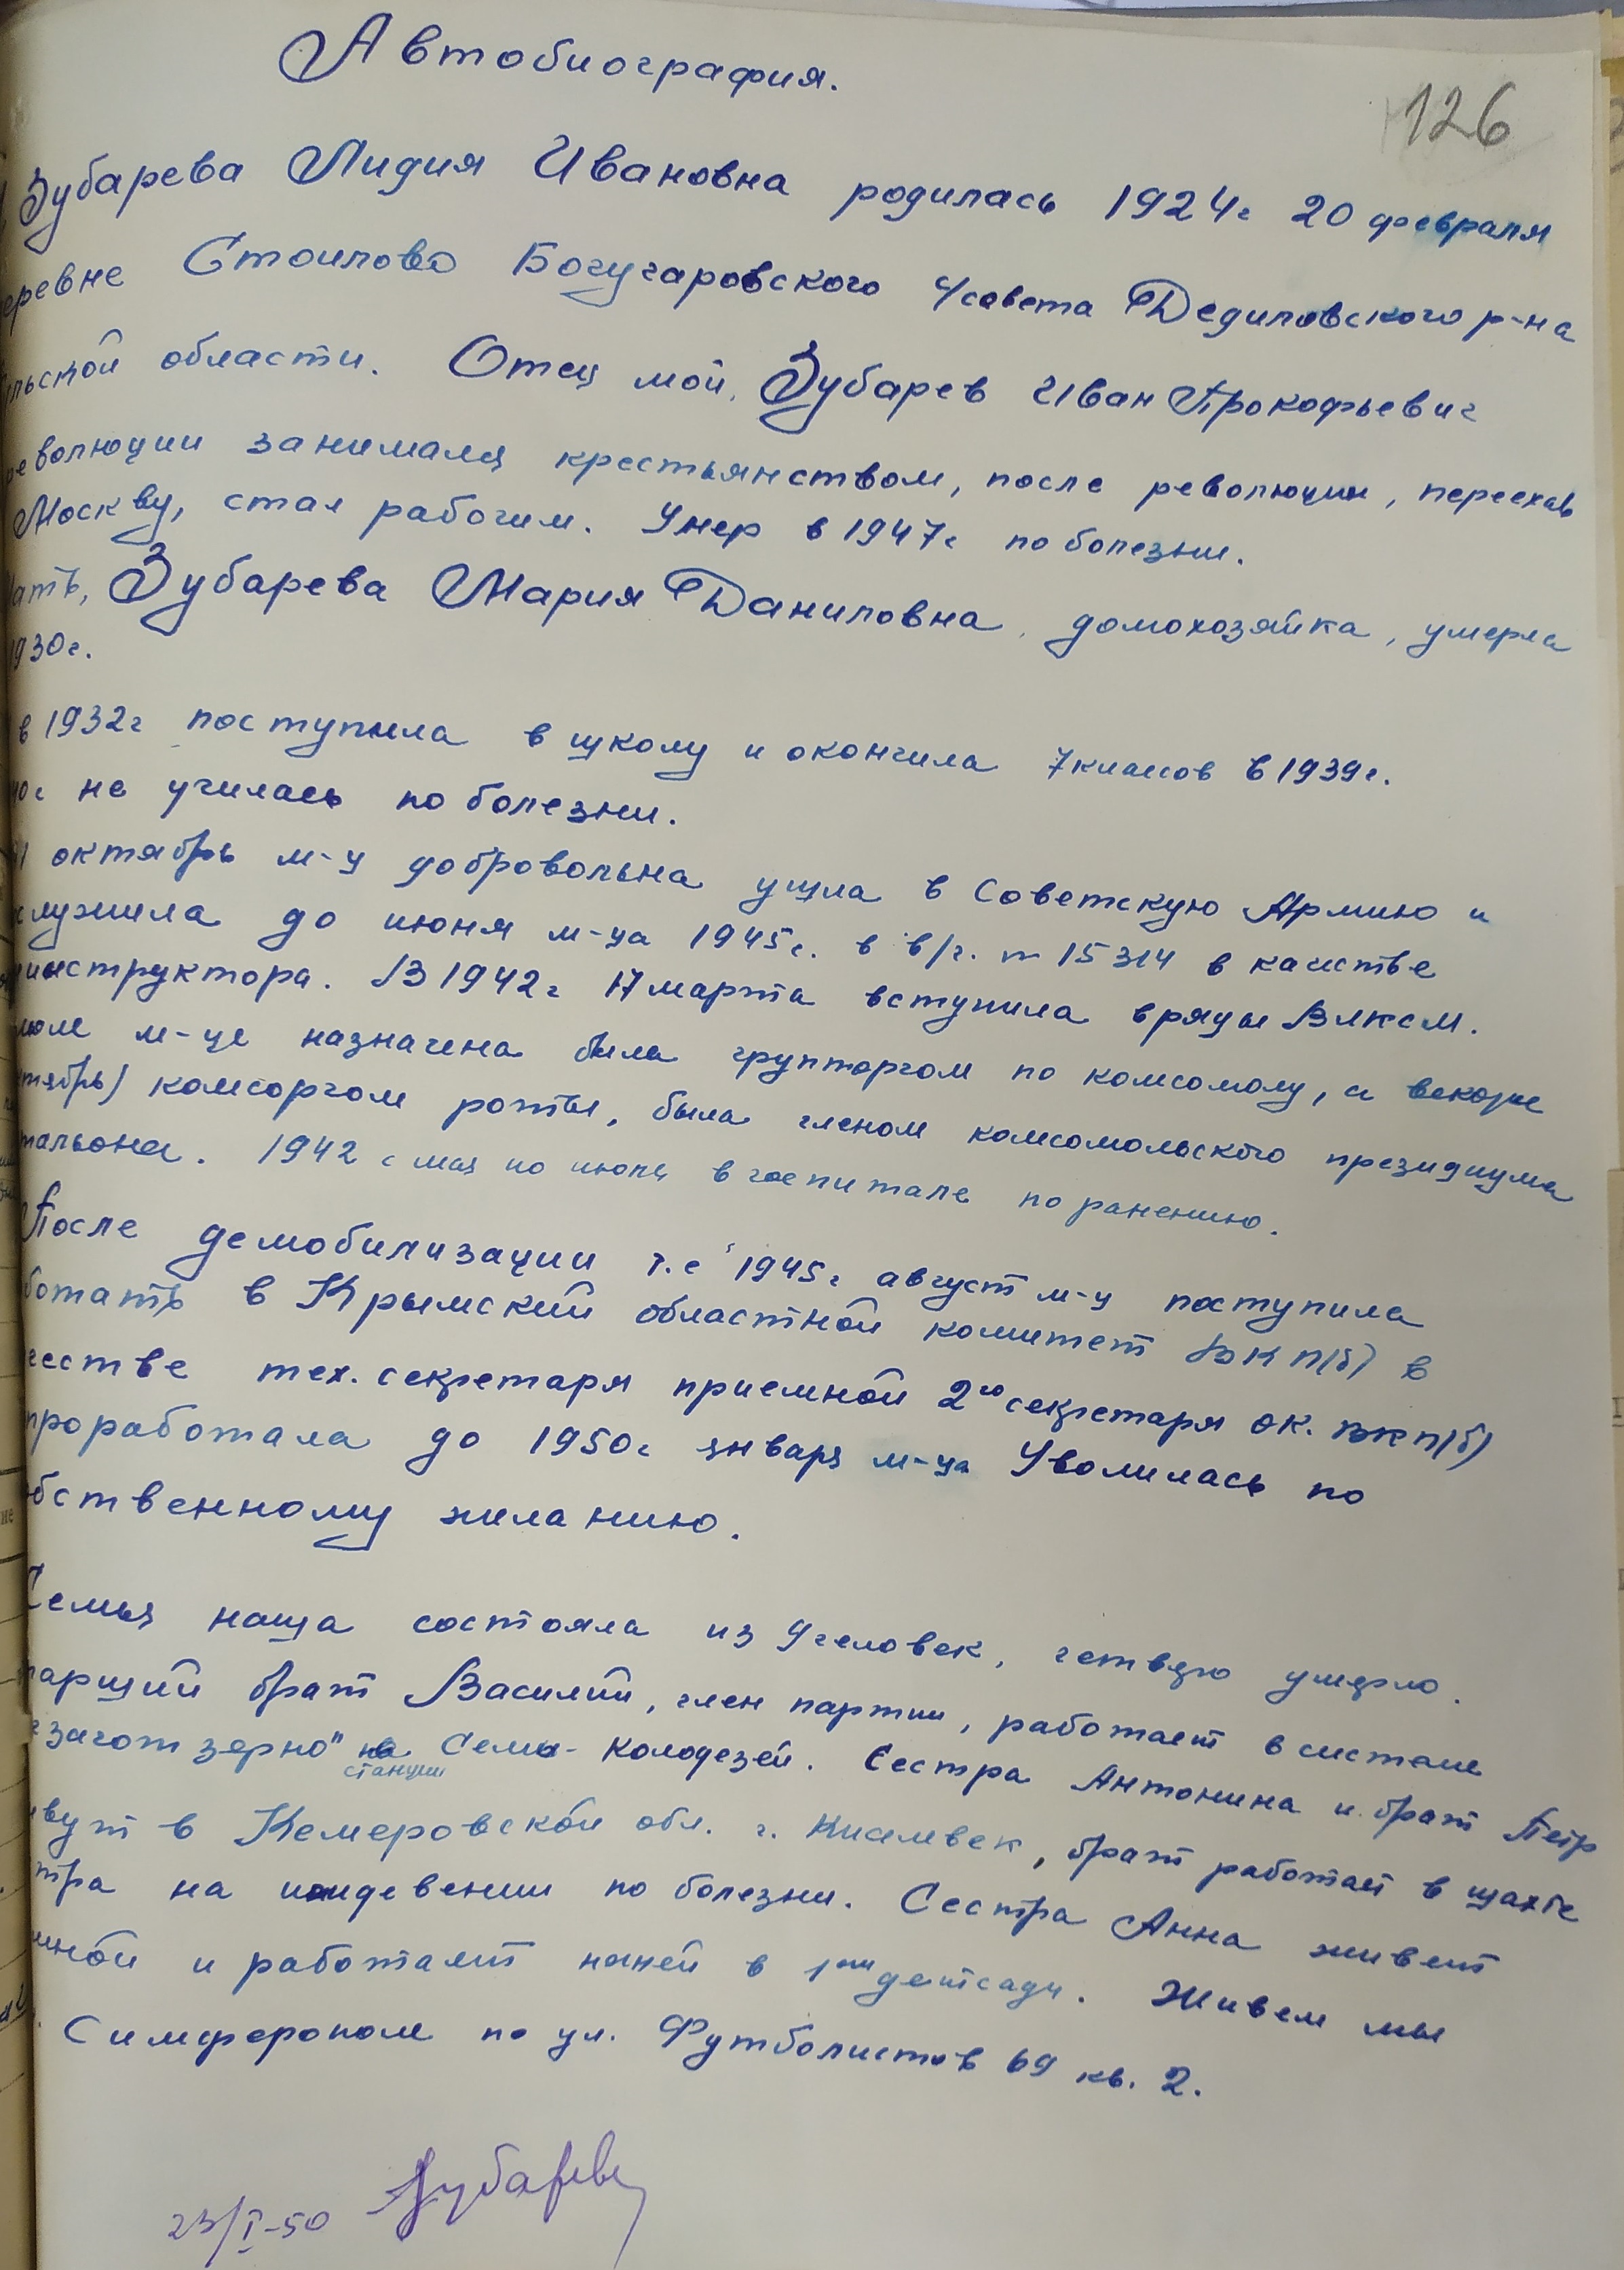 Автобиография.
126
Зубарева Лидия Ивановна родилась 1924г 20 февраля
еревне Стоилово Богучаровского с/совета Дедиловского р-на
льской области. Отец мой, Зубарев Иван Прокофьевич
революции занимался крестьянством, после революции, переехав
Москву, стал рабочим. Умер в 1947г по болезни.
ать, Зубарева Мария Даниловна, домохозяйка, умерла
1930г.
в 1932г поступила в школу и окончила 7 классов в 1939г.
40г не училась по болезни.
41 октябрь м-ц добровольна ушла в Советскую Армию и
служила до июня м-ца 1945г. в в/ч. п 15314 в качестве
инструктора. В 1942г 17 марта вступила в ряды ВЛКСМ.
м-це назначена была групторгом по комсомолу, а вскоре
тябрь) комсоргом роты, была членом комсомольского президиума
тальона. 1942 с мая по июль в госпитале по ранению.
После демобилизации т.е 1945г август м-ц поступила
ботать в Крымский областной комитет ВКП(б) в
честве тех. секретаря приемной 2го секретаря ОК. ВКП(б)
проработала до 1950г январь м-ца Уволилась по
бственному желанию.
Семья наша состояла из 9 человек, четверо умерло.
тарший брат Василий, член партии, работает в системе
"заготзерно" на станции Семь-Колодезей. Сестра Антонина и брат Петр
ивут в Кемеровской обл. г. Киселевск, брат работает в шахте
тра на иждевении по болезни. Сестра Анна живет
мной и работает няней в 1ом детсаду. Живем мы
. Симферополе по ул. Футболистов 69 кв. 2.
23/I-50 Зубарева